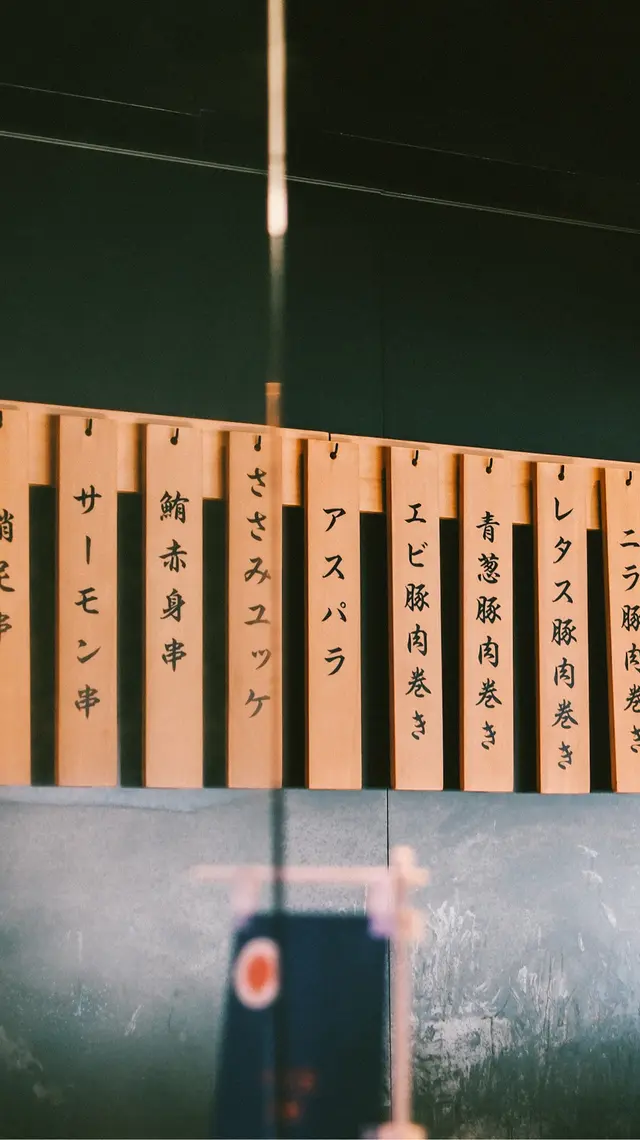 ニラ豚肉巻き
レタス豚肉巻き
青葱豚肉巻き
エビ豚肉巻き
アスパラ
ささみユッケ
鮪赤身串
サーモン串